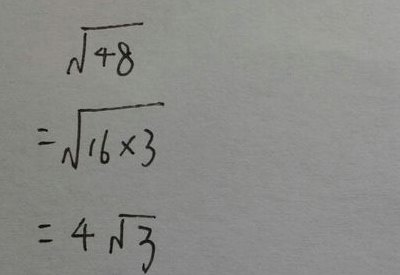 √48
=√16×3
=4√3